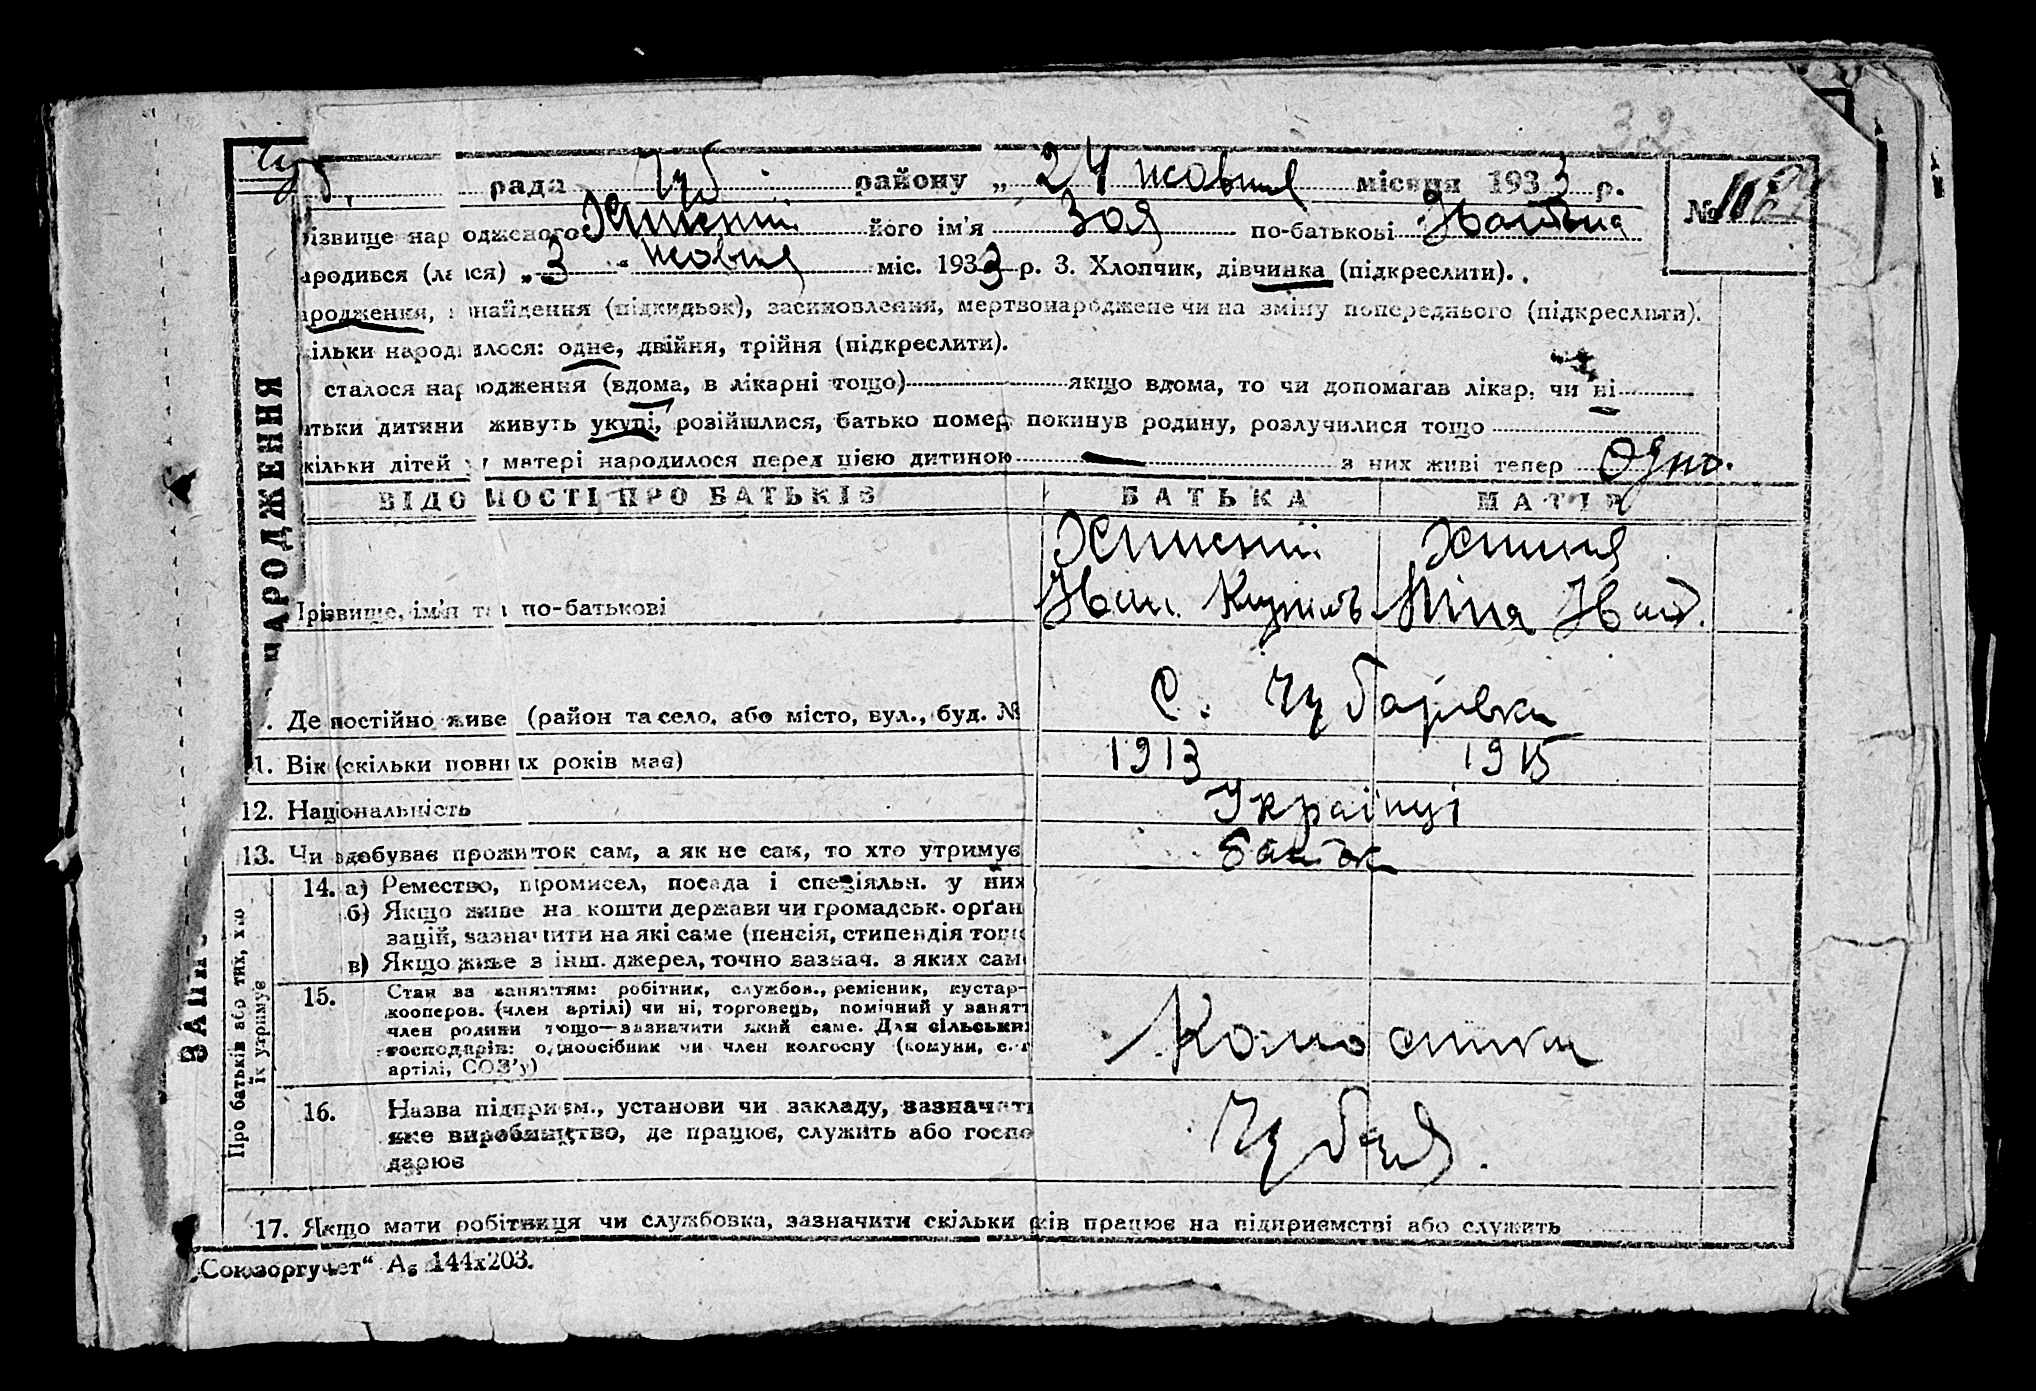 32
Чуб. рада Чуб. району „ 24 жовтня місяця 1933 р.
№
ізвище народженого його ім'я Зоя по-батькові
ародився (лася) „ 3 " жовтня міс. 1933 р. 3. Хлопчик, дівчинка (підкреслити).
ародження, знайдення (підкидьок), засиновлення, мертвонароджене чи на зміну попереднього (підкреслити).
ільки народилося: одне, двійня, трійня (підкреслити).
сталося народження (вдома, в лікарні тощо) якщо вдома, то чи допомагав лікар, чи ні
атьки дитини живуть укупі, розійшлися, батько помер, покинув родину, розлучилися тощо
кільки дітей у матері народилося перед цією дитиною — з них живі тепер Одно.
ВІДОМОСТІ ПРО БАТЬКІВ БАТЬКА МАТІР
Прізвище, ім'я та по-батькові Іван Ніна Іван.
Де постійно живе (район та село, або місто, вул., буд. № С. Чубарівка
11. Вік (скільки повних років має) 1913 1915
12. Національність Українці
13. Чи здобуває прожиток сам, а як не сам, то хто утримує батьк
Про батьків або тих, хто їх утримує
14. а) Ремество, промисел, посада і спеціяльн. у них
б) Якщо живе на кошти держави чи громадськ. орґан
зацій, зазначити на які саме (пенсія, стипендія тощо
в) Якщо живе з інш. джерел, точно зазнач. з яких сам
15. Стан за заняттям: робітник, службов., ремісник, кустар-
кооперов. (член артілі) чи ні, торговець, помічний у занятт
член родини тощо—зазначити який саме. Для сільських
господарів: одноосібник чи член колгоспу (комуни, с.-г
артілі, СОЗ'у)
16. Назва підприєм., установи чи закладу, зазначати
яке виробництво, де працює, служить або госпо
дарює
17. Якщо мати робітниця чи службовка, зазначити скільки років працює на підприємстві або служить
„Союзоргучет“ А₅ 144х203.